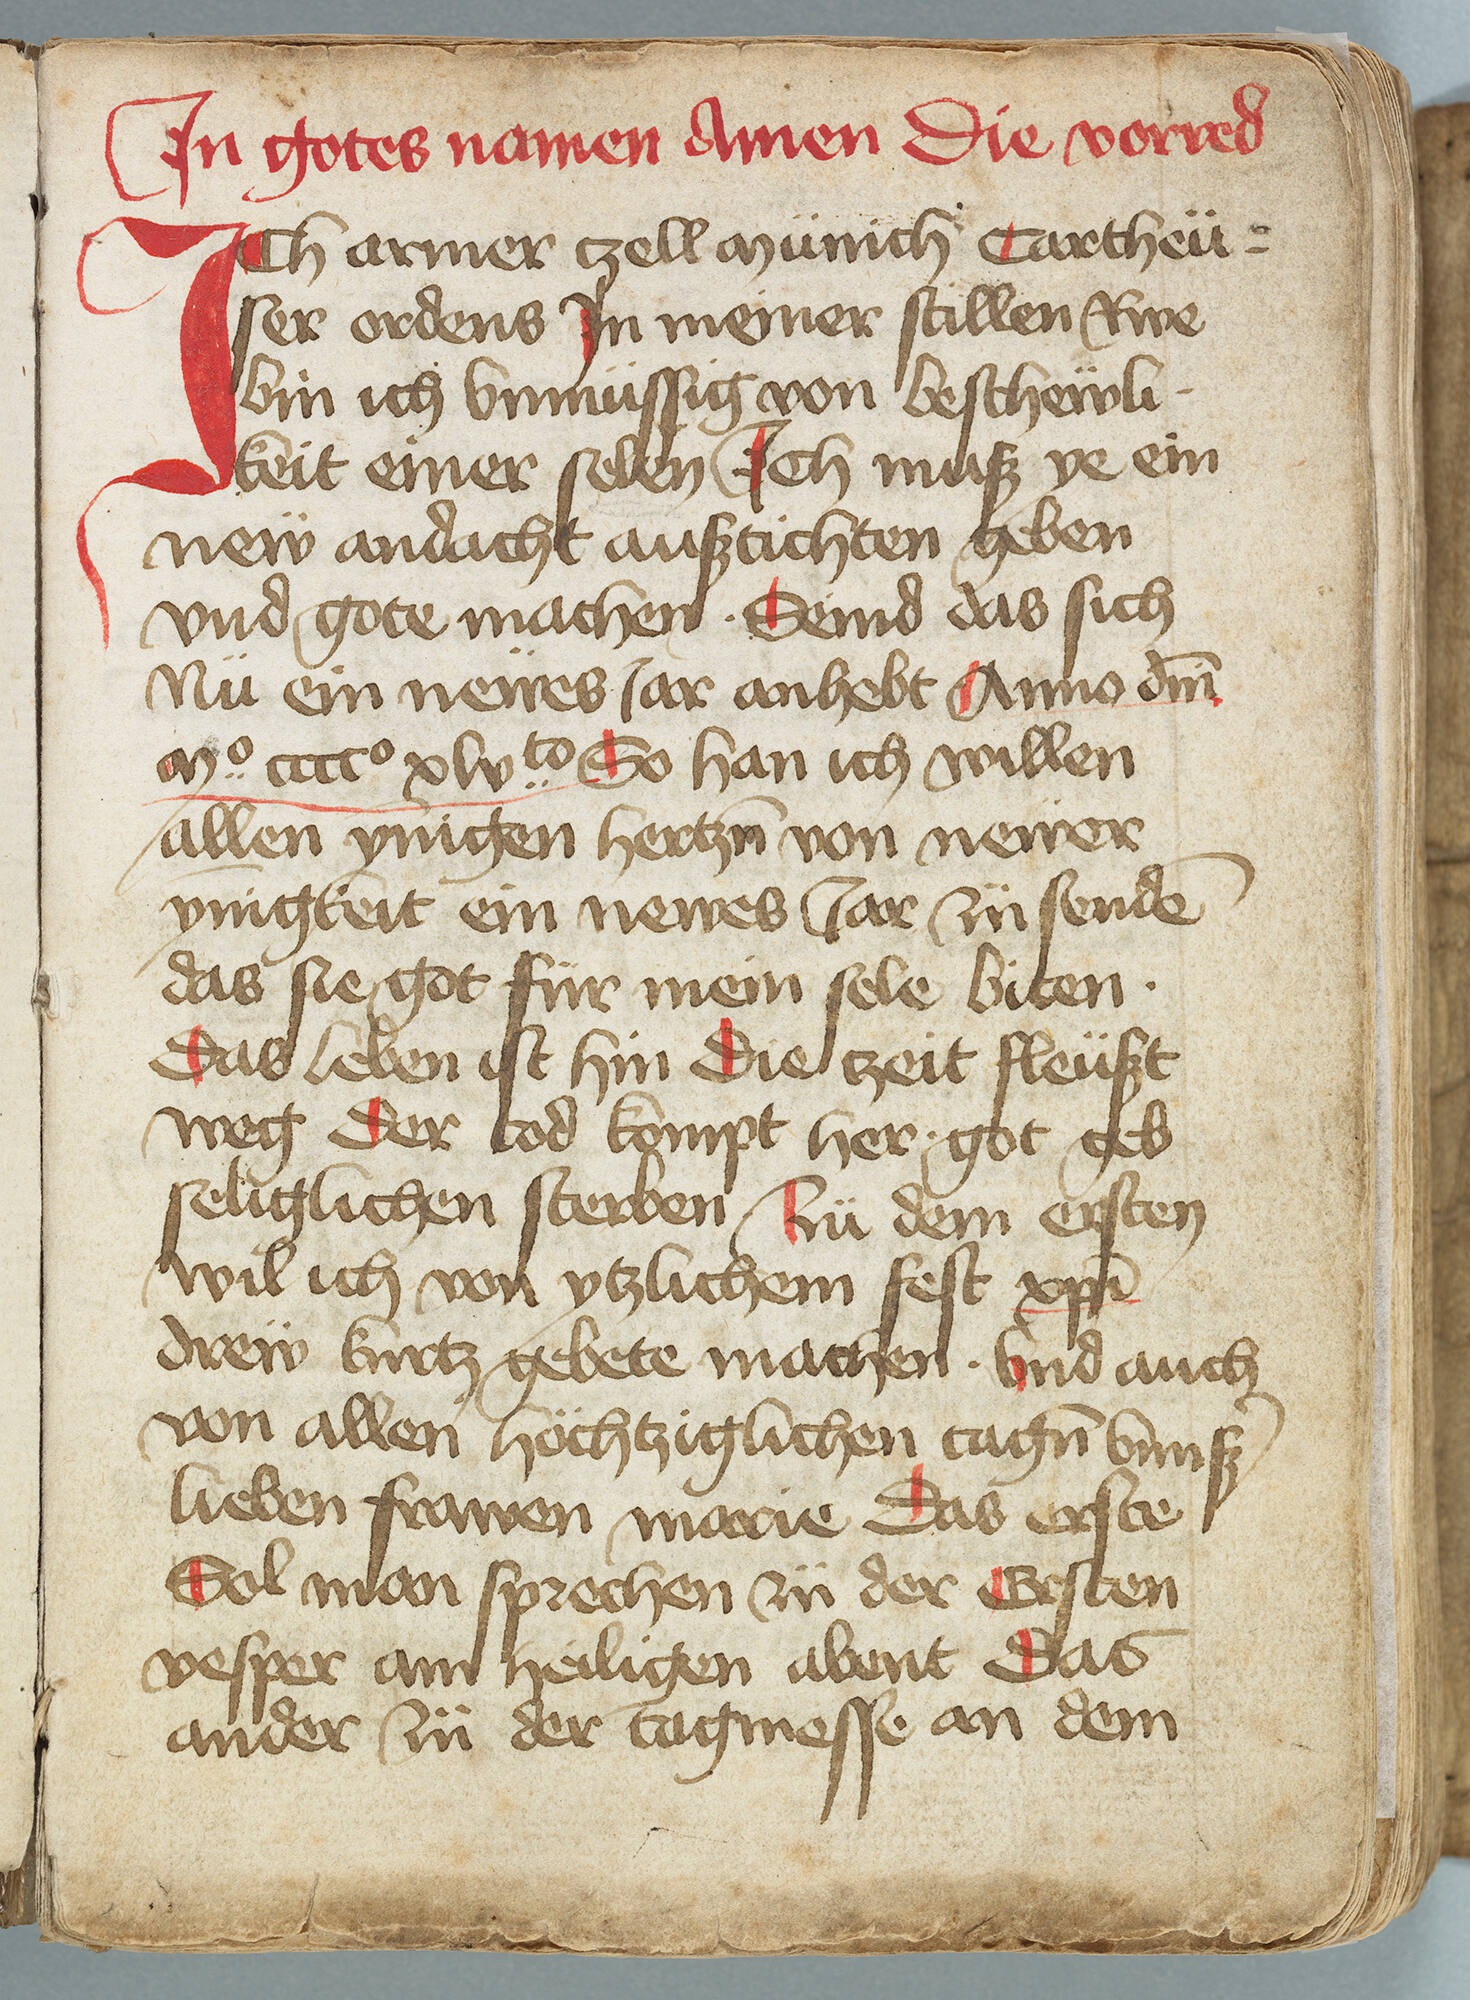 In gotes namen Amen Die vorred
ICh armer tzell münich Cartheü=
ser ordens In meiner stillen Rwe
bin ich vnmüssig von bescheẅli-
keit einer selen Ich muß ye ein
neẅ andacht außtichten geben
vnd gote machen . Seind das sich
Nü ein neẅes Jar anhebt Anno dn̄i
Mo cccco xlvto So han ich willen
allen ynigen hertzn̄ von newer
ynigkeit ein newes Jar zü sendē
das sie got für mein sele biten .
Das leben ist hin Die tzeit fleüßt
weg Der tod kömpt her . got geb
seliglichen sterben Zü dem ersten
wil ich von ytzlichem fest xp̄i
dreẅ kurtz gebete machen . Vnd auch
von allen höchtziglichen tagn̄ vnnß̉
lieben frawen marie Das erste
Sol man sprechen zü der Ersten
vesper am heiligen abent Das
ander zü der tagmesse an dem